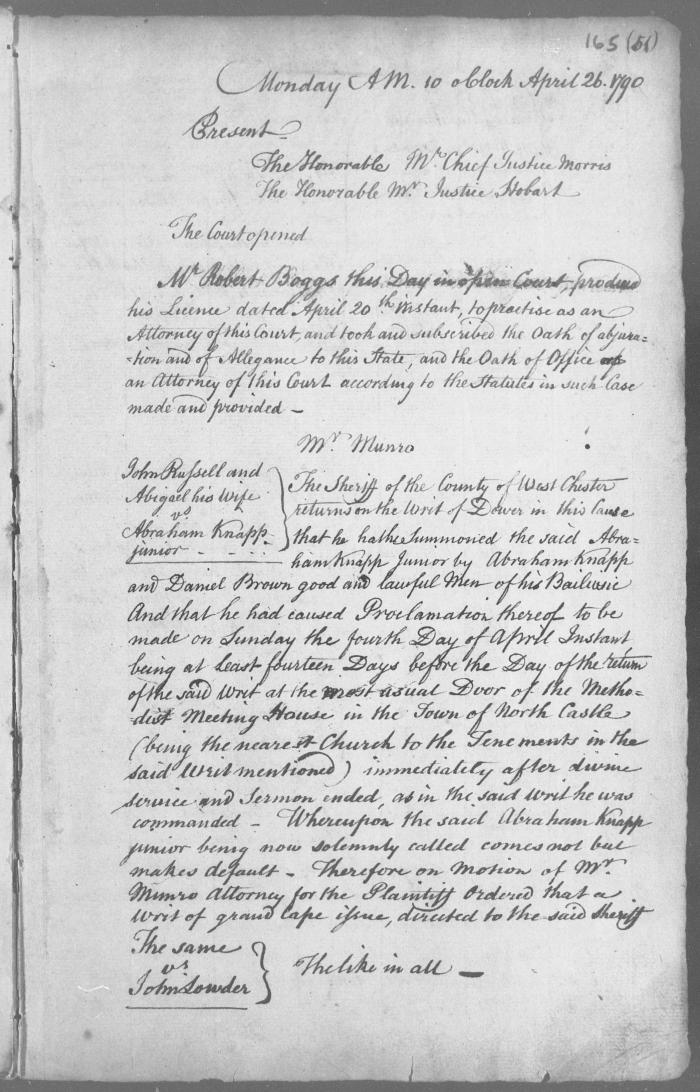 165 (51)
Monday A.M. 10 oClock April 26. 1790
Present
The Honorable Mr. Chief Justice Morris
The Honorable Mr. Justice Hobart
The Court opened
Mr. Robert Boggs this Day in open Court, produced
his Licence dated April 20th instant, to practise as an
Attorney of this Court, and took and subscribed the Oath of abjura=
=tion and of Allegance to this State, and the Oath of Office of
an Attorney of this Court according to the Statutes in such Case
made and provided –
Mr. Munro
John Russell and
Abigael his Wife
vs
Abraham Knapp
junior
The Sheriff of the County of West Chester
returns on the Writ of Dower in this Cause
that he hath Summoned the said Abra=
ham Knapp Junior by Abraham Knapp
and Daniel Brown good and lawful Men of his Bailiwic
And that he had caused Proclamation thereof to be
made on Sunday the fourth Day of April Instant
being at least fourteen Days before the Day of the return
of the said Writ at the most usual Door of the Metho=
=dist Meeting House in the Town of North Castle
(being the nearest Church to the Tenements in the
said Writ mentioned) immediately after divine
service and Sermon ended, as in the said Writ he was
commanded – Whereupon the said Abraham Knapp
junior being now solemnly called comes not but
makes default – Therefore on Motion of Mr.
Munro Attorney for the Plaintiff Ordered that a
Writ of grand Cape issue, directed to the said Sheriff
The same
vs
John Lowder
The like in all –